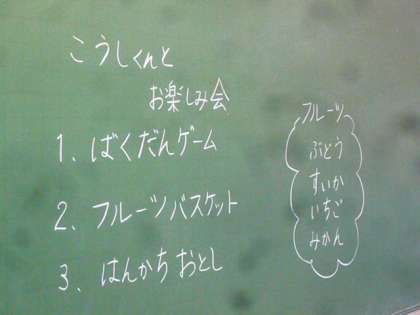 こうしくんと
お楽しみ会
1. ばくだんゲーム
2. フルーツバスケット
3. はんかちおとし
フルーツ
ぶどう
すいか
いちご
みかん